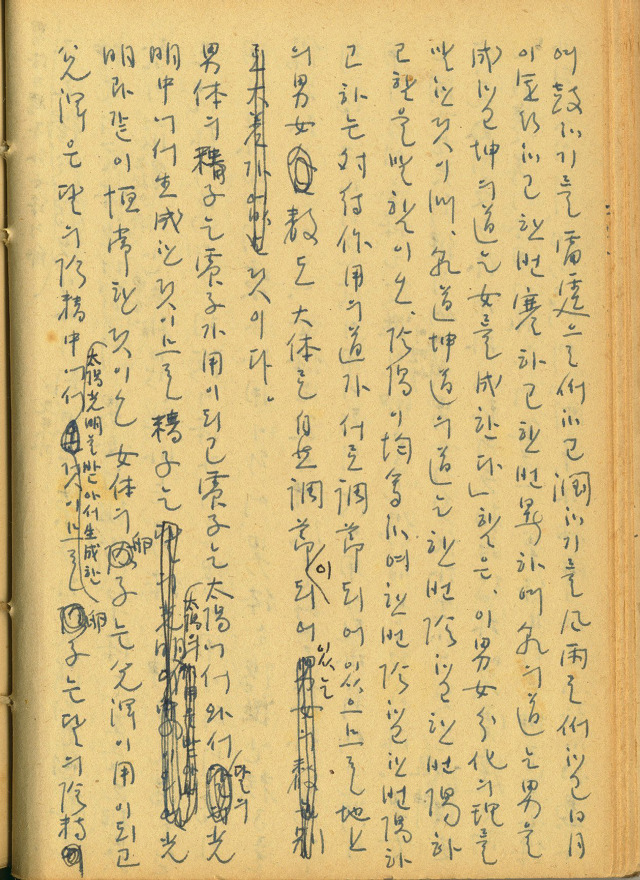 며 鼓하기를 雷霆으로써 하고 潤하기를 風雨로써 하야 日月
이 運行하고 한번 寒하고 한번 暑하며 乾의 道는 男을
成하고 坤의 道는 女를 成한다」함은, 이 男女分化의 理를
말한 것이며, 乾道坤道의 道는 한번 陰하고 한번 陽하
고 함을 말함이오, 陰陽이 均衡하여 한번 陰하고 한번 陽하
고 하는 對待作用의 道가 서로 調節되어 있으므로 地上
의 男女 數도 大体로 自然調節이 되어 있는
것이다。
男体의 精子는 震子가 用이 되고 震子는 太陽에서 와서 달의 光
明中에서 生成한 것이므로 精子는 太陽의 光
明과 같이 恒常한 것이오 女体의 卵子는 兌渾이 用이 되고
兌渾은 달의 陰精中에서 太陽光明을 받아서 生成한 것이므로 卵子는 달의 陰精